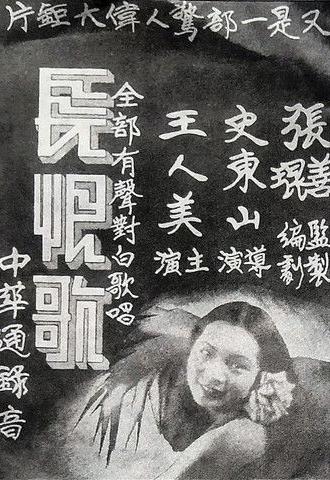 又是一部驚人偉大鉅片
張善琨 監製
史東山 編劇 導演
王人美 主演
全部有聲對白歌唱
長恨歌
中華通錄音